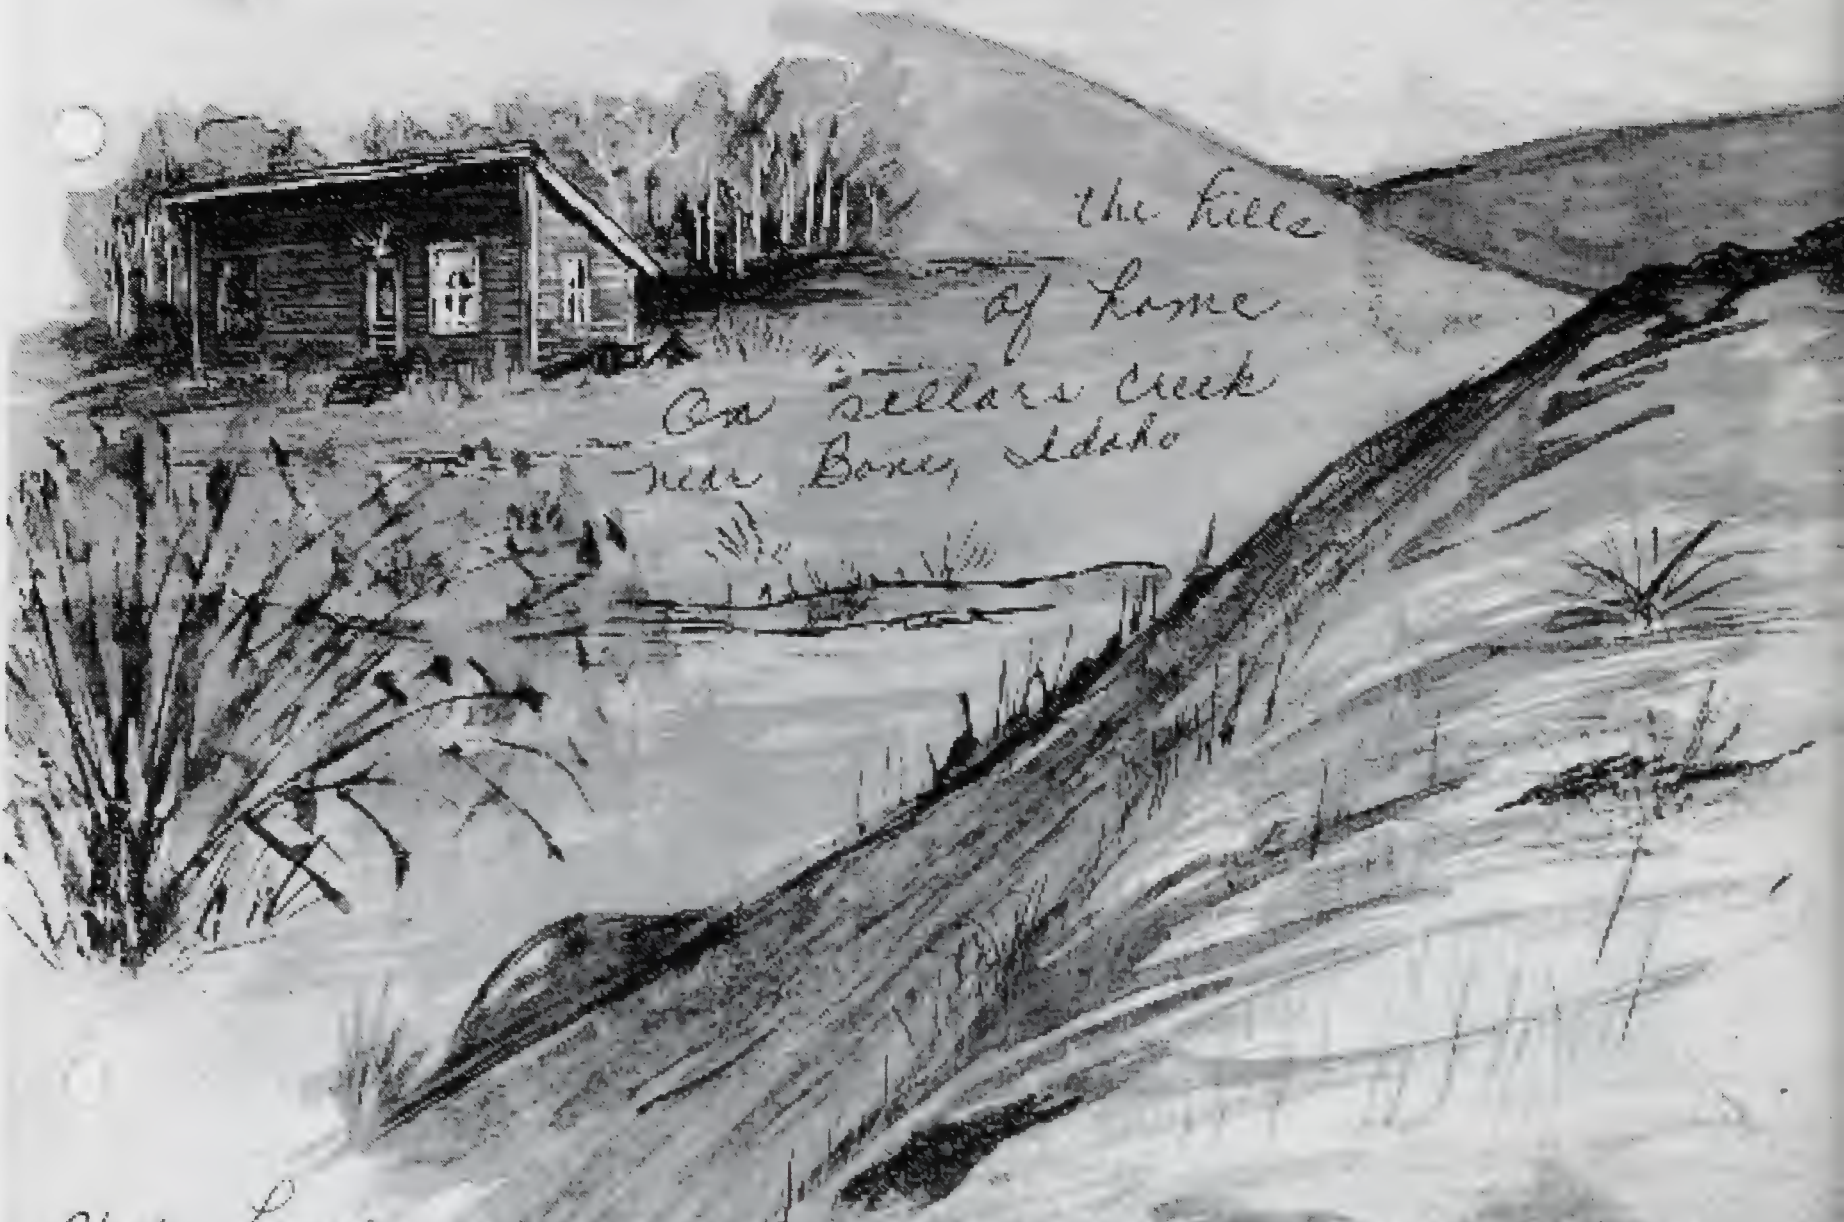 the hills
of home
On Sellars Creek
near Bone, Idaho